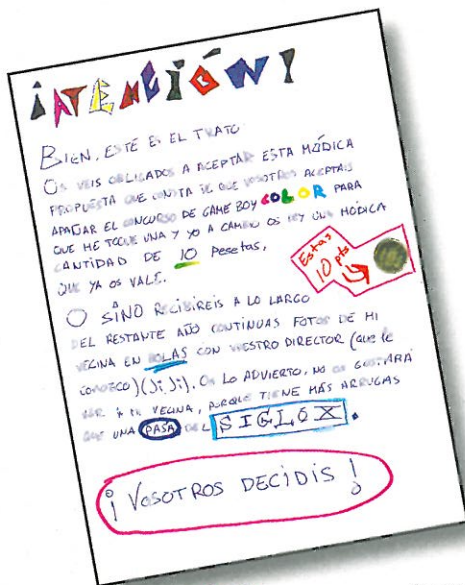 ¡ATENCIÓN!
BIEN, ESTE ES EL TRATO
OS VEIS OBLIGADOS A ACEPTAR ESTA MÓDICA
PROPUESTA QUE CONSTA DE QUE VOSOTROS ACEPTAIS
AMAÑAR EL CONCURSO DE GAME BOY COLOR PARA
QUE ME TOQUE UNA Y YO A CAMBIO OS DOY UNA MÓDICA
CANTIDAD DE 10 Pesetas,
QUE YA OS VALE.
Estas
10 pts
O SINO RECIBIREIS A LO LARGO
DEL RESTANTE AÑO CONTINUAS FOTOS DE MI
VECINA EN BOLAS CON VUESTRO DIRECTOR (que le
conozco)(Ji, Ji). OS LO ADVIERTO, NO OS GUSTARÁ
VER A MI VECINA, PORQUE TIENE MÁS ARRUGAS
QUE UNA PASA DEL SIGLO X.
¡VOSOTROS DECIDIS!